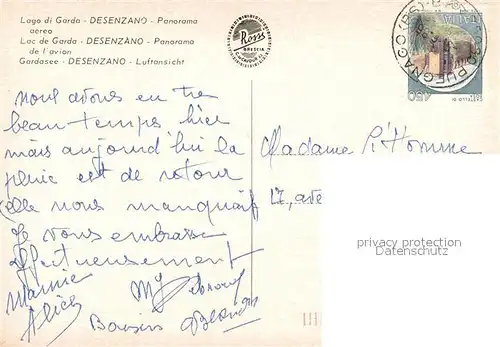 Lago di Garda - DESENZANO - Panorama
aereo
Lac de Garda - DESENZANO - Panorama
de l'avion
Gardasee - DESENZANO - Luftansicht
Ross
BRESCIA
ITALIA
450
nous avons eu tres
beau temps hier
mais aujourd'hui la
pluie est de retour
(elle nous manquait
Je vous embrasse
affectueusement
Mamie
Alice
Baisers
Madame P. Homme
17, ave
privacy protection